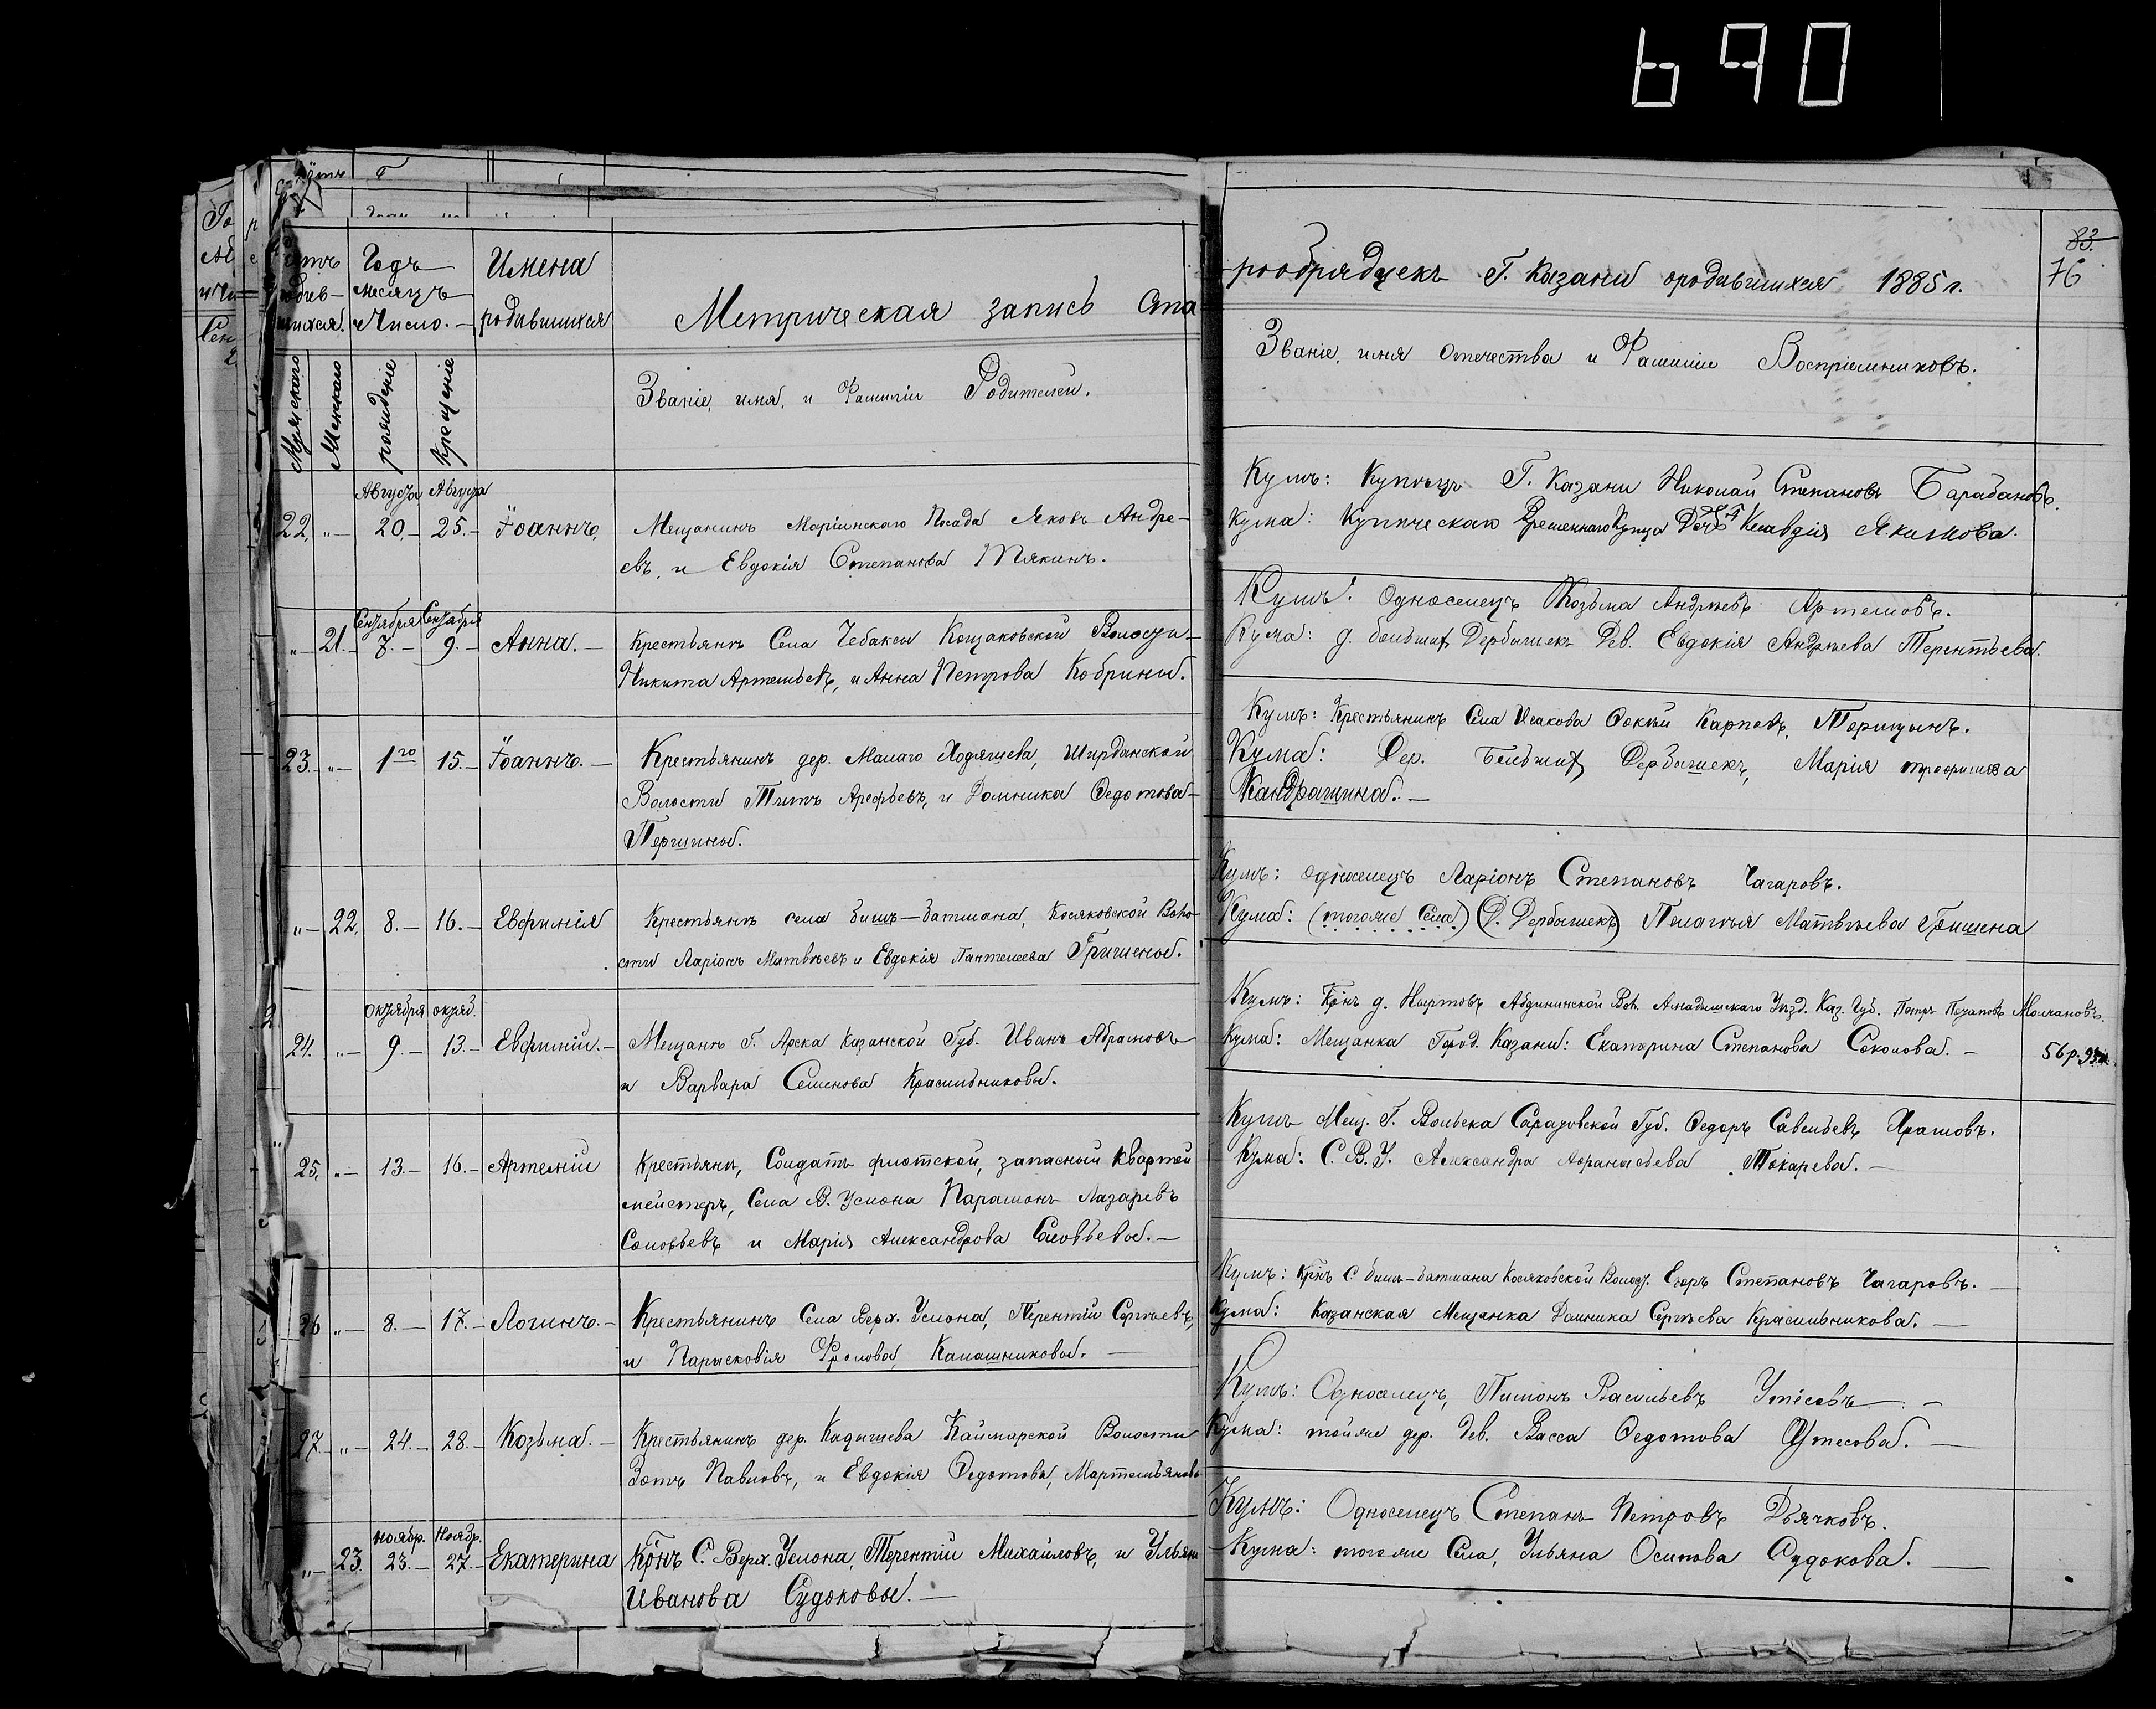 690
83.
76
Годъ
Месяцъ
Число.
Имена
родившихся
Метрическая запись Ста-
рообрядцевъ Г. Казани о родившихся 1885 г.
Мужскаго
Женскаго
рожденіе
Крещеніе
Званіе, имя, и Фамиліи Родителей.
Званіе, имя Отечества и Фамиліи Воспріемниковъ.
Августа Августа
22. „ 20. 25. Іоаннъ.
Мещанинъ Маріинскаго Посада Яковъ Андре-
евъ, и Евдокія Степанова Тякинъ.
Кумъ: Купецъ Г. Казани Николай Степановъ Барабановъ.
Кума: Купческаго Временнаго Купца Дочь Клавдія Якимова.
Сентября Сентября
„ 21. 7. 9. Анна.
Крестьянъ Села Чебаксы Кощаковской Волости
Никита Артемьевъ, и Анна Петрова Кобрины.
Кумъ: Односелецъ Козьма Андреевъ Артемовъ.
Кума: д. большихъ Дербышекъ Дев. Евдокія Андреева Терентьева.
23. „ 1го 15. Іоаннъ.
Крестьянинъ дер. Малаго Ходяшева, Ширданской
Волости Титъ Арефьевъ, и Домника Федотова
Першины.
Кумъ: Крестьянинъ Села Исакова Фокъй Карповъ,
Кума: Дер. Большихъ Дербышекъ, Марія трофимова
Кандрашина.
„ 22. 8. 16. Евфимія
Крестьянъ села бишъ-батмана, Косяковской Воло-
сти Ларіонъ Матвѣевъ и Евдокія Пантелеева Гришены.
Кумъ: Односелецъ Ларіонъ Степановъ Чагаровъ.
Кума: (тогоже Села) (Д. Дербышекъ) Пелагея Матвѣева Гришена
Октября октяб.
24. „ 9. 13. Евфимій.
Мещанъ Г. Арска Казанской Губ. Иванъ Абрамовъ
и Варвара Семенова Красильниковы.
Кумъ: Крнъ д. Ныртовъ Абдинской Вол. Мамадышскаго Уезд. Каз. Губ. Петръ Молчановъ.
Кума: Мещанка Город. Казани: Екатерина Степанова Соколова.
56 р.
25. „ 13. 16. Артемій
Крестьянъ, Солдатъ флотской, запасный квартой
мейстеръ, Села В. Услона Парамонъ Лазаревъ
Соловьевъ и Марія Александрова Соловьевы.
Кумъ Мещ. Г. Вольска Саратовской Губ. Федоръ Савельевъ Храмовъ.
Кума: С. В. У. Александра Афанасьева Токарева.
26 „ 8. 17. Логинъ.
Крестьянинъ Села Верх. Услона, Терентій Сергѣевъ,
и Парасковія Фролова, Калашниковы.
Кумъ: Крнъ С. бишъ-батмана Косяковской Волост. Егоръ Степановъ Чагаровъ.
Кума: Казанская Мещанка Домника Сергѣева Красильникова.
27. „ 24. 28. Козьма.
Крестьянинъ дер. Кадышева Каймарской Волости
Зотъ Павловъ, и Евдокія Федотова, Мартемьяновы
Кумъ: Односелецъ, Пимонъ Васильевъ Утесовъ
Кума: тойже дер. Дев. Васса Федотова Утесова.
ноябр. Ноябр.
„ 23. 23. 27. Екатерина
Крнъ С. Верх. Услона, Терентій Михайловъ, и Ульяна
Иванова Судоковы.
Кумъ: Односелецъ Степанъ Петровъ Дьячковъ.
Кума: тогоже Села, Ульяна Осипова Судокова.